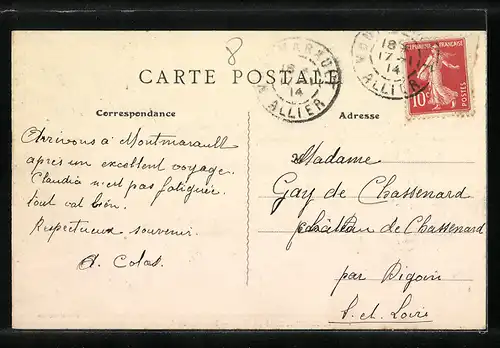 8
CARTE POSTALE
MARAUL
ALLIER
14
18
17
14
ALLIER
RÉPUBLIQUE FRANÇAISE
10c
POSTES
Correspondance
Arrivons à Montmarault
après un excellent voyage.
Claudia n'est pas fatiguée.
tout va bien!
Respectueux souvenir.
A. Colas.
Adresse
Madame
Gay de Chassenard
château de Chassenard
par Digoin
S. et. Loire